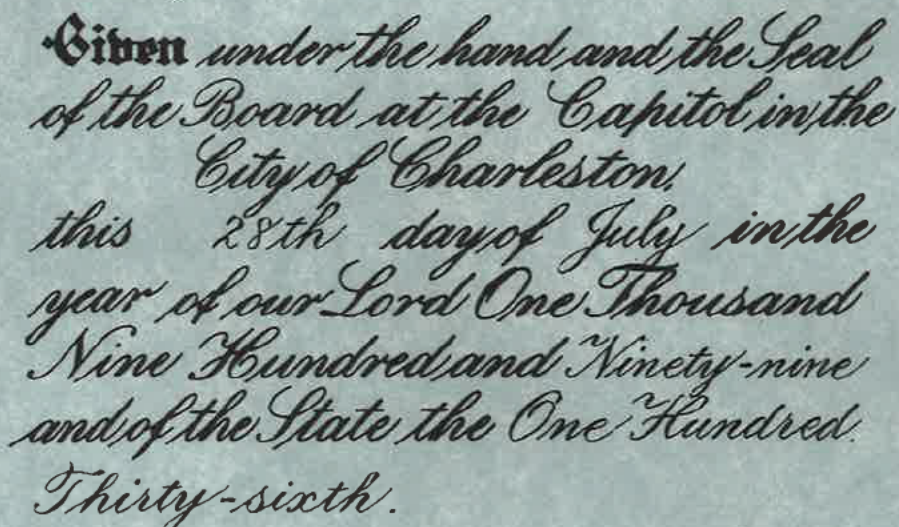 Given under the hand and the Seal
of the Board at the Capitol in the
City of Charleston,
this 28th day of July in the
year of our Lord One Thousand
Nine Hundred and Ninety-nine
and of the State the One Hundred
Thirty-sixth.